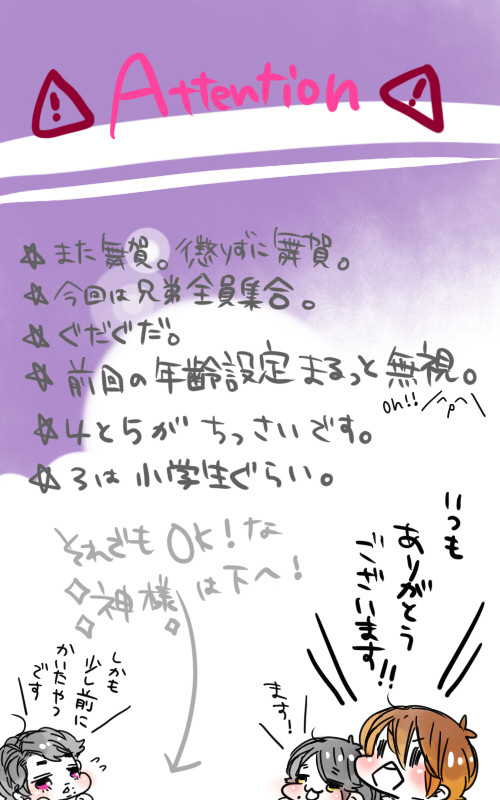 Attention
☆また舞賀。懲りずに舞賀。
☆今回は兄弟全員集合。
☆ぐだぐだ。
☆前回の年齢設定まるっと無視。
oh!! ／^p^＼
☆4と5がちっさいです。
☆3は小学生ぐらい。
それでもOK!な
神様は下へ!
いつも
ありがとう
ございます!!
ます!
しかも
少し前に
かいたやつ
です